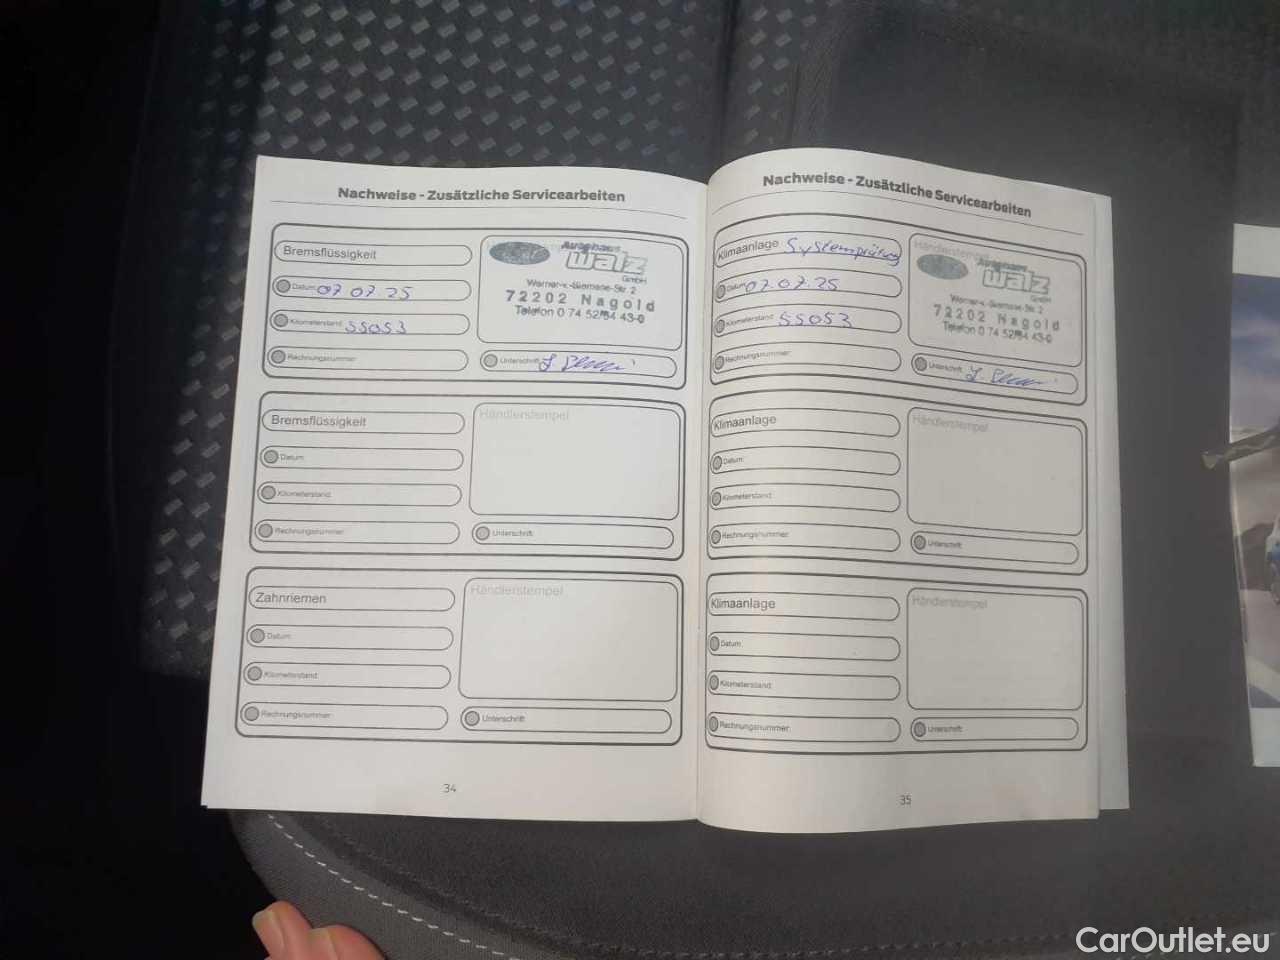 Nachweise - Zusätzliche Servicearbeiten
Bremsflüssigkeit
Datum: 07.07.25
Kilometerstand: 55053
Rechnungsnummer:
Autohaus
Walz
GmbH
Werner-v.-Siemens-Str. 2
72202 Nagold
Telefon 0 74 52/84 43-0
Unterschrift:
Bremsflüssigkeit
Datum:
Kilometerstand:
Rechnungsnummer:
Händlerstempel
Unterschrift:
Zahnriemen
Datum:
Kilometerstand:
Rechnungsnummer:
Händlerstempel
Unterschrift:
34
Nachweise - Zusätzliche Servicearbeiten
Klimaanlage Systemprüfung
Datum: 07.07.25
Kilometerstand: 55053
Rechnungsnummer:
Händlerstempel
Autohaus
Walz
GmbH
Werner-v.-Siemens-Str. 2
72202 Nagold
Telefon 0 74 52/84 43-0
Unterschrift:
Klimaanlage
Datum:
Kilometerstand:
Rechnungsnummer:
Händlerstempel
Unterschrift:
Klimaanlage
Datum:
Kilometerstand:
Rechnungsnummer:
Händlerstempel
Unterschrift:
35
CarOutlet.eu